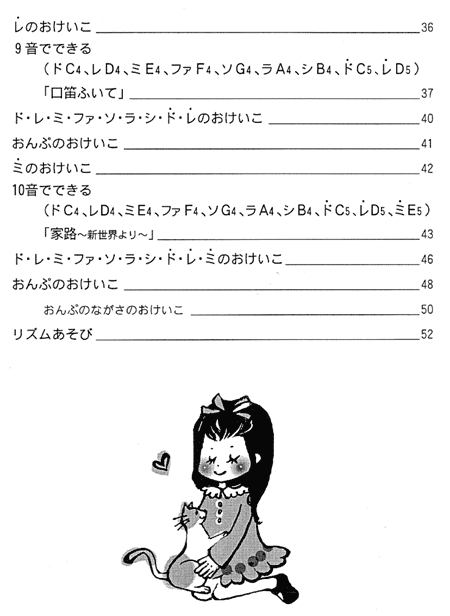 レ̇のおけいこ 36
9音でできる
(ドC4、レD4、ミE4、ファF4、ソG4、ラA4、シB4、ド̇C5、レ̇D5)
「口笛ふいて」 37
ド・レ・ミ・ファ・ソ・ラ・シ・ド̇・レ̇のおけいこ 40
おんぷのおけいこ 41
ミ̇のおけいこ 42
10音でできる
(ドC4、レD4、ミE4、ファF4、ソG4、ラA4、シB4、ド̇C5、レ̇D5、ミ̇E5)
「家路~新世界より~」 43
ド・レ・ミ・ファ・ソ・ラ・シ・ド̇・レ̇・ミ̇のおけいこ 46
おんぷのおけいこ 48
おんぷのながさのおけいこ 50
リズムあそび 52